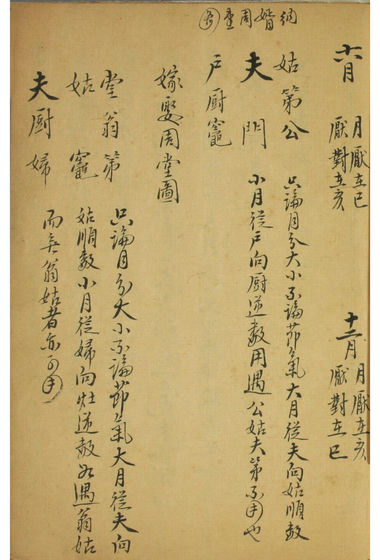 納婚周堂
六月 月厭在巳
厭對在亥
十二月 月厭在亥
厭對在巳
姑第公
夫門
戶厨竈
只論月分大小不論節氣大月從夫向姑順數
小月從戶向厨逆數用遇公姑夫第不用也
嫁娶周堂圖
堂翁第
姑竈
夫厨婦
只論月分大小不論節氣大月從夫向
姑順數小月從婦向灶逆數如遇翁姑
而無翁姑者亦可用